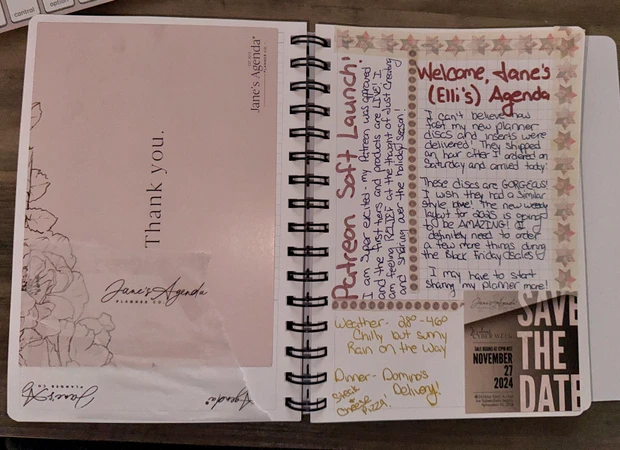 control
option
Jane's Agenda®
PLANNER CO.
Thank you.
Jane's Agenda
PLANNER CO.
Jane's Ag
PLANNER CO
Agenda®
Patreon Soft Launch!
I am super excited - my Patreon was approved
and the first tiers and products are LIVE! I
am feeling RELIEF at the thought of Just Creating
and sharing over the holiday season!
Welcome, Jane's
(Elli's) Agenda
I can't believe how
fast my new planner
discs and inserts were
delivered! They shipped
an hour after I ordered on
Saturday and arrived today!
These discs are GORGEOUS!
I wish they had a similar
style blue! The new weekly
layout for 2025 is going
to be AMAZING! I
definitely need to order
a few more things during
the Black Friday Sales!
I may have to start
sharing my planner more!
Weather - 28° - 46°
Chilly but sunny
Rain on the Way
Dinner - Domino's
Delivery!
Steak &
Cheese
Pizza!
Jane's Agenda
SALE BEGINS AT 12PM EST
NOVEMBER
27
2024
SAVE
THE
DATE